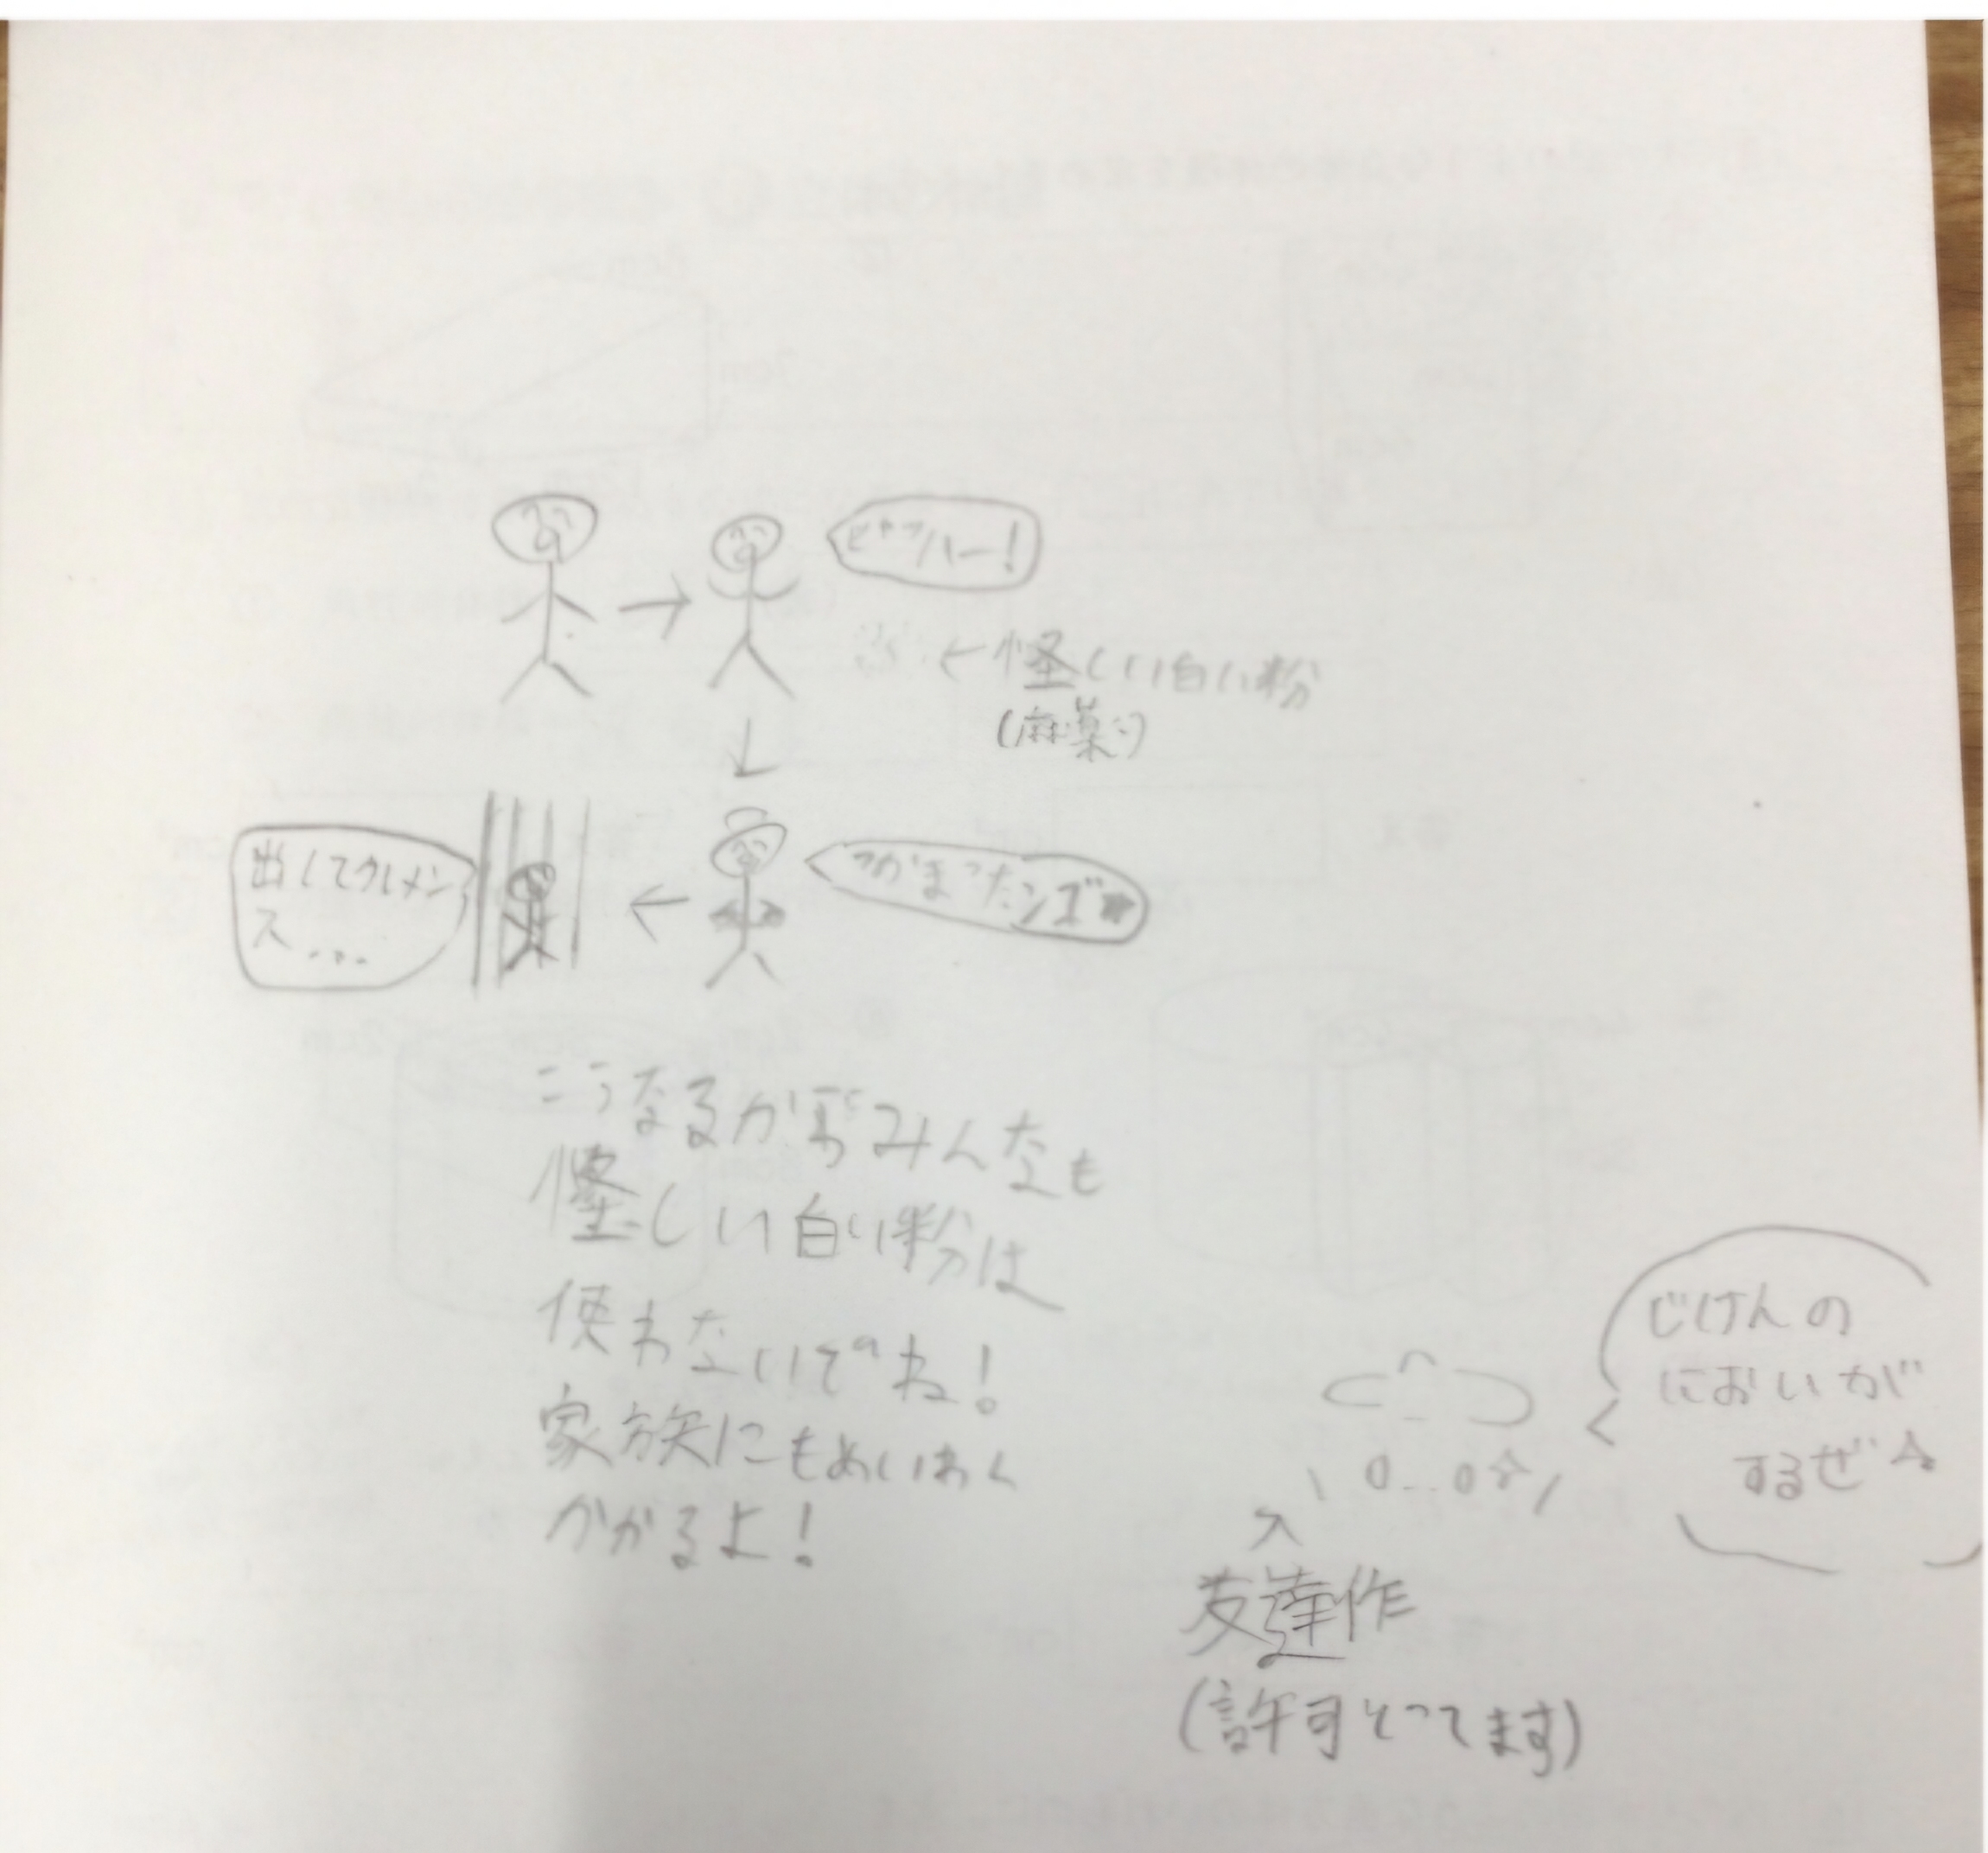 ヒャッハー!
←怪しい白い粉
(麻薬)
つかまったンゴ
出してクレメン
ス...
こうなるからみんなも
怪しい白い粉は
使わないでね!
家族にもめいわく
かかるよ!
じけんの
においが
するぜ☆
友達作
(許可とってます)